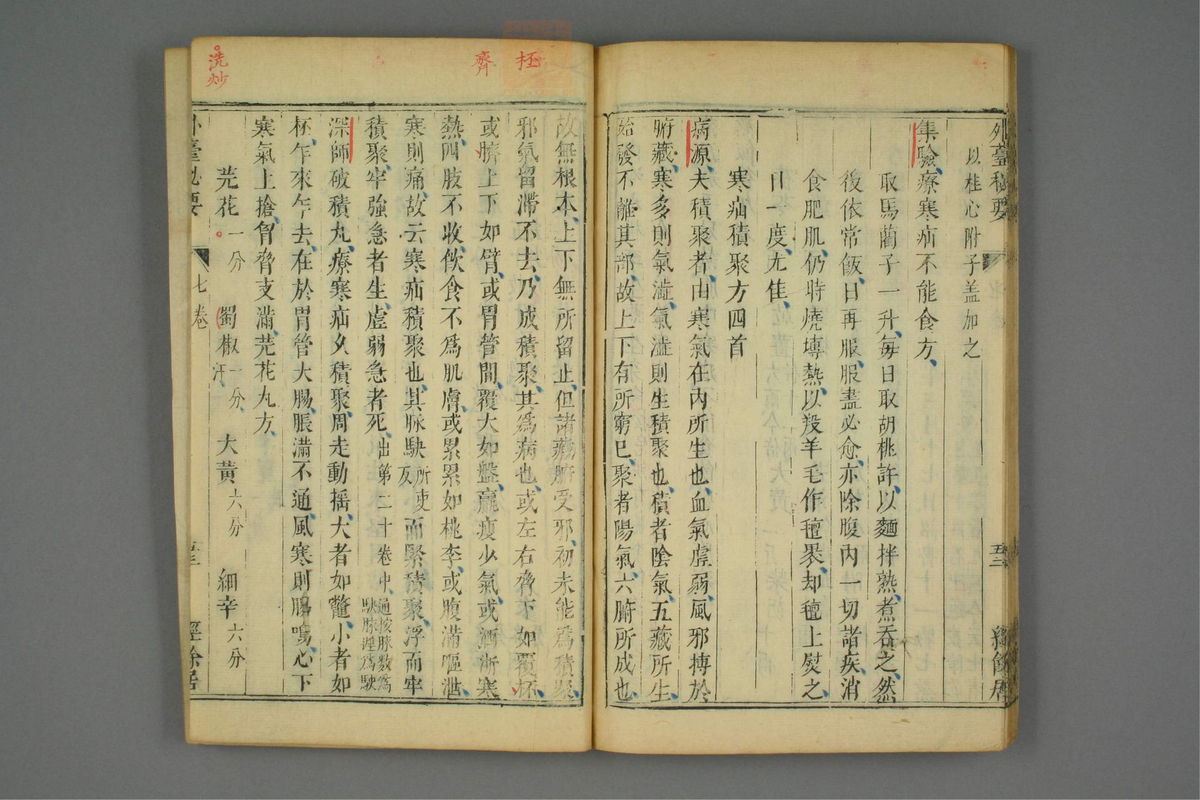 外臺秘要
以桂心附子蓋加之
集驗療寒疝不能食方
取馬藺子一升每日取胡桃許以麵拌熟煮吞之然
後依常飯日再服服盡必愈亦除腹内一切諸疾消
食肥肌仍時燒塼熱以羖羊毛作氊褁却氊上熨之
日一度尤佳
寒疝積聚方四首
病源夫積聚者由寒氣在内所生也血氣虛弱風邪搏於
腑藏寒多則氣澁氣澁則生積聚也積者陰氣五藏所生
始發不離其部故上下有所窮已聚者陽氣六腑所成也
極
齊
洗炒
故無根本上下無所留止但諸藏腑受邪初未能爲積聚
邪氣留滯不去乃成積聚其爲病也或左右脅下如覆杯
或臍上下如臂或胃管間覆大如盤羸瘦少氣或洒淅寒
熱四肢不收飲食不爲肌膚或累累如桃李或腹滿嘔泄
寒則痛故云寒疝積聚也其脉駃所吏反而緊積聚浮而牢
積聚牢強急者生虛弱急者死出第二十卷中通按脉數爲駃脉遲爲駃
深師破積丸療寒疝久積聚周走動搖大者如鼈小者如
杯乍來乍去在於胃管大腸脹滿不通風寒則腸鳴心下
寒氣上搶胷脅支滿芫花丸方
芫花一分 蜀椒一分汗 大黃六分 細辛六分
外臺秘要 七卷 五三 經餘居